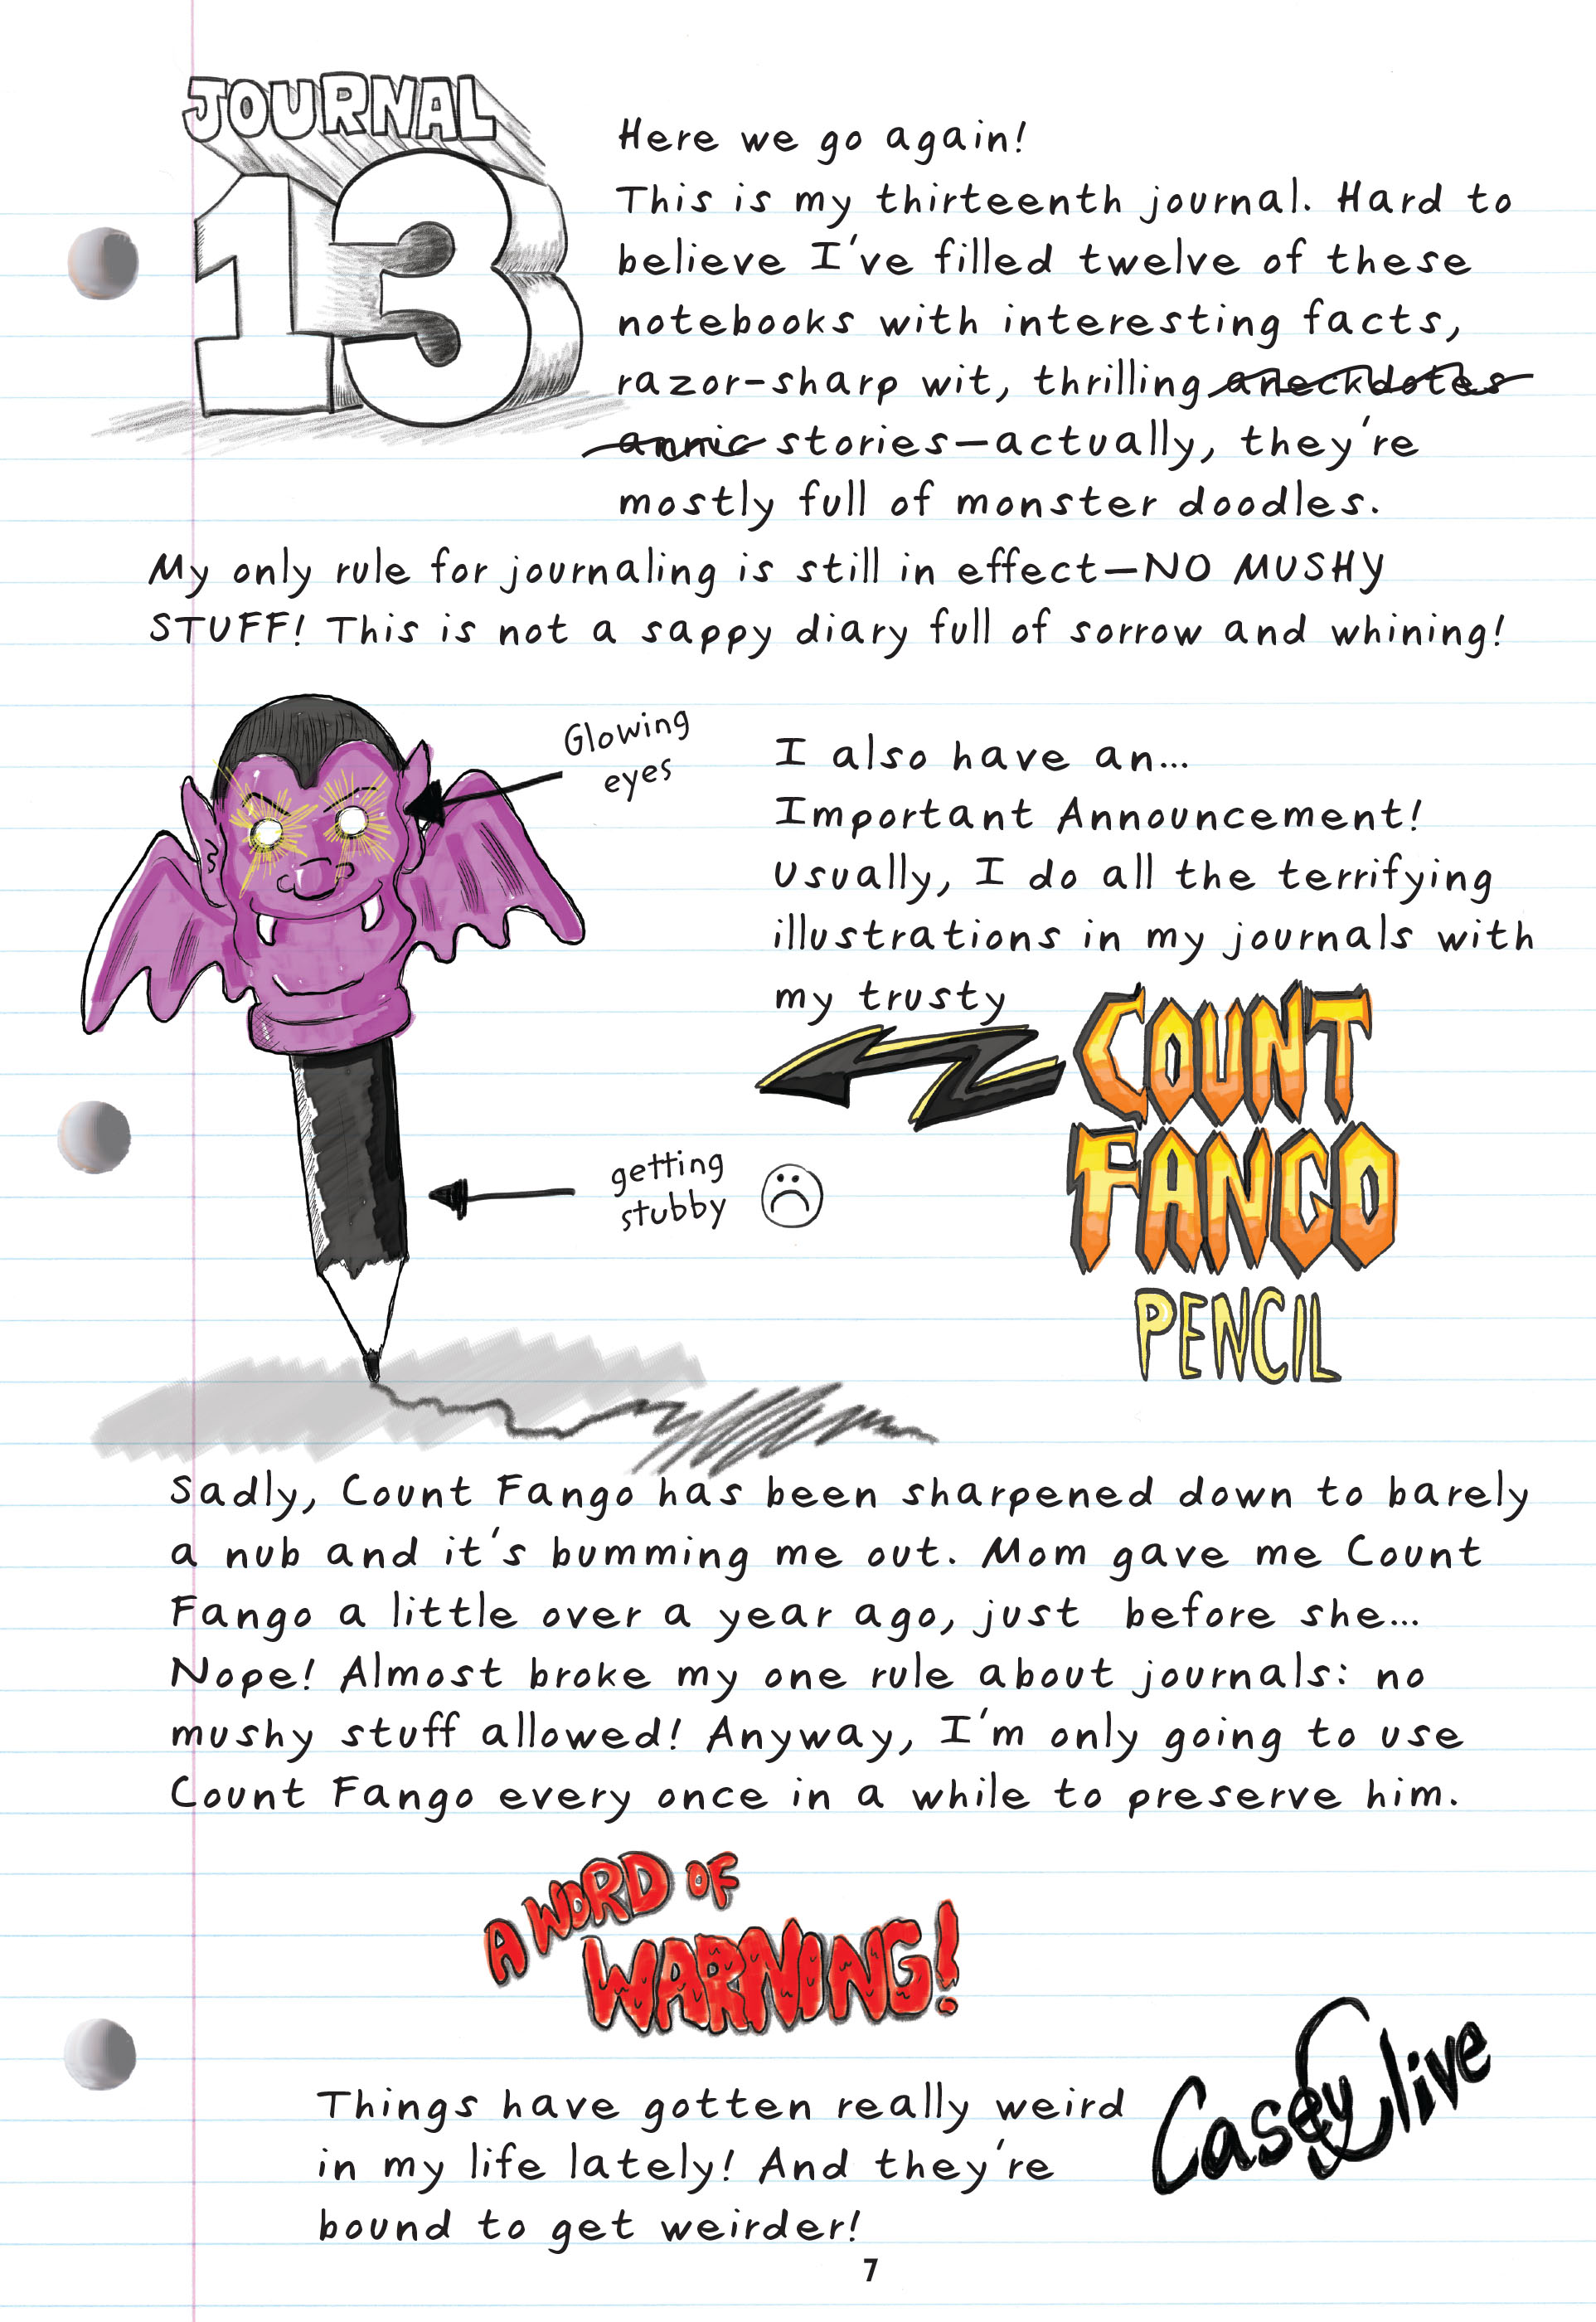 JOURNAL
13
Here we go again!
This is my thirteenth journal. Hard to
believe I've filled twelve of these
notebooks with interesting facts,
razor-sharp wit, thrilling aneckdotes
annic stories—actually, they're
mostly full of monster doodles.
My only rule for journaling is still in effect—NO MUSHY
STUFF! This is not a sappy diary full of sorrow and whining!
Glowing
eyes
I also have an...
Important Announcement!
Usually, I do all the terrifying
illustrations in my journals with
my trusty
COUNT
FANGO
PENCIL
getting
stubby
Sadly, Count Fango has been sharpened down to barely
a nub and it's bumming me out. Mom gave me Count
Fango a little over a year ago, just before she...
Nope! Almost broke my one rule about journals: no
mushy stuff allowed! Anyway, I'm only going to use
Count Fango every once in a while to preserve him.
A WORD OF
WARNING!
Things have gotten really weird
in my life lately! And they're
bound to get weirder!
Casey Clive
7